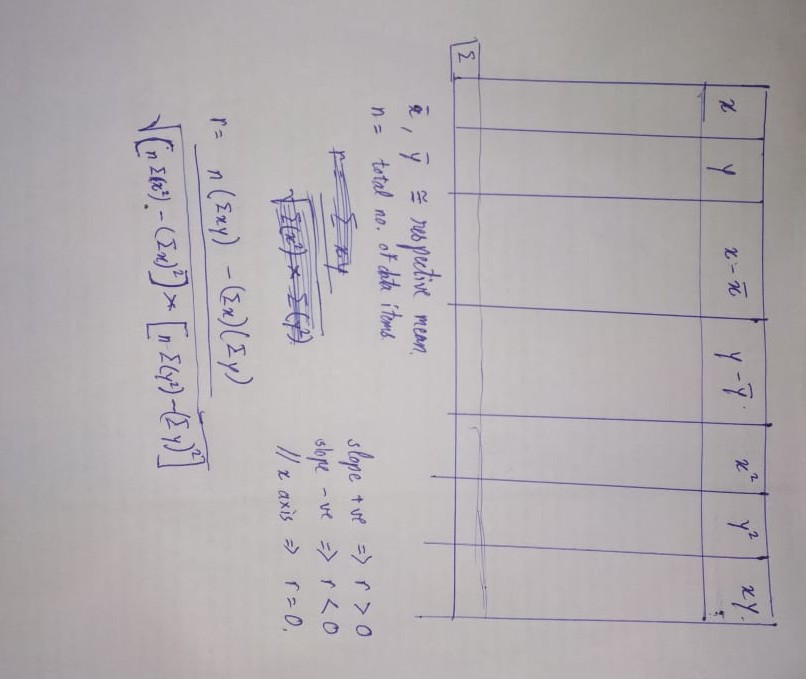 x y x - x̄ y - ȳ x² y² xy.
Σ
x̄, ȳ ≅ respective mean.
n = total no. of data items
r = Σ xy
√Σ(x²) × Σ(y²)
slope +ve => r > 0
slope -ve => r < 0
// x axis => r = 0.
r = n(Σxy) - (Σx)(Σy)
√[n Σ(x²) - (Σx)²] × [n Σ(y²) - (Σy)²]